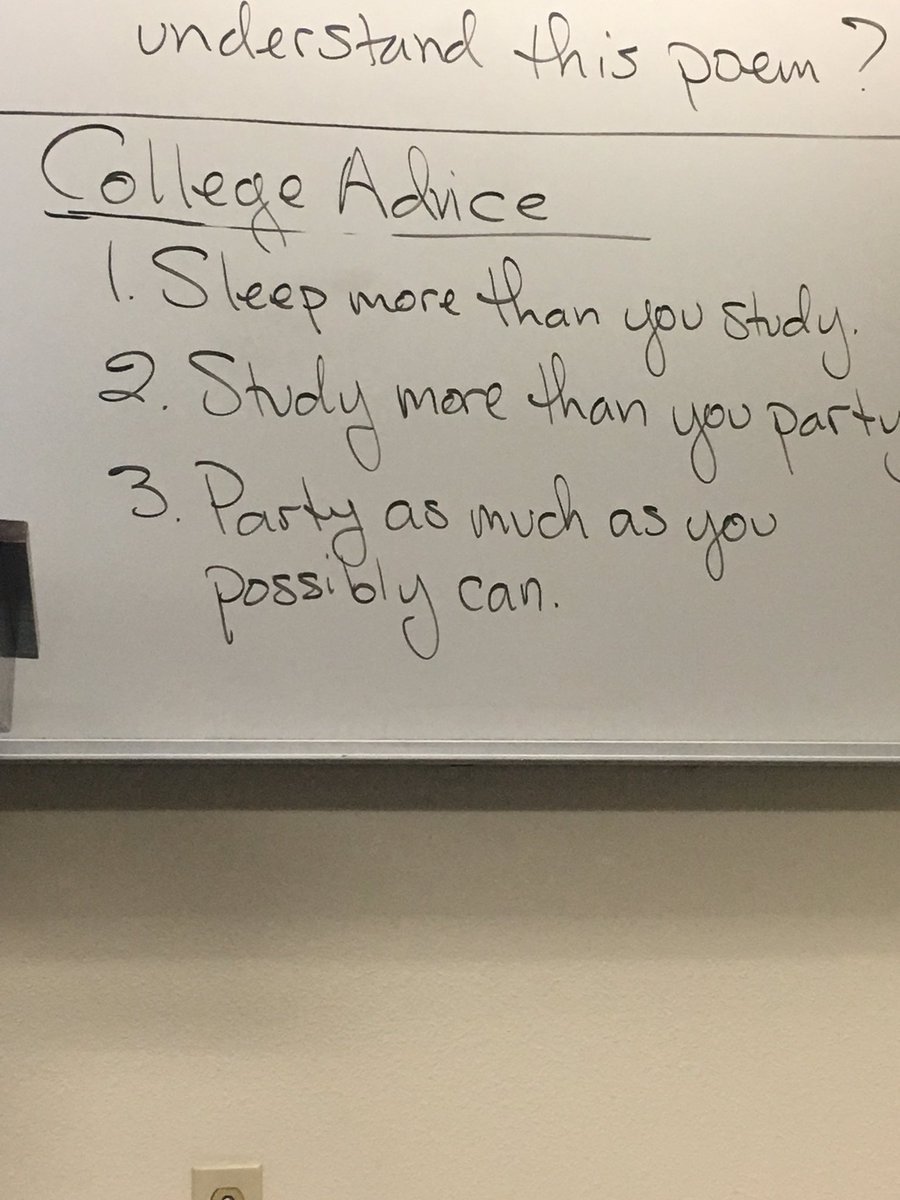 understand this poem?
College Advice
1. Sleep more than you study.
2. Study more than you party
3. Party as much as you
possibly can.